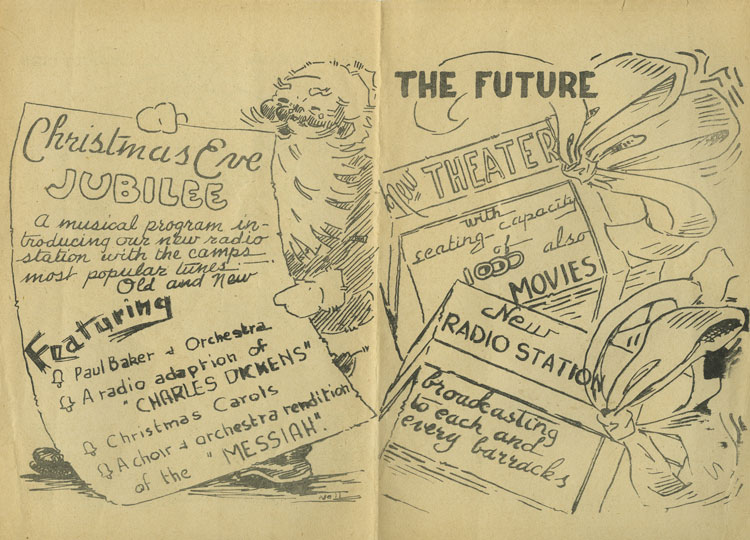 Christmas Eve
JUBILEE
A musical program in-
troducing our new radio
station with the camps
most popular tunes
Old and New
Featuring
Paul Baker & Orchestra
A radio adaption of
"CHARLES DICKENS"
Christmas Carols
A choir & orchestra rendition
of the "MESSIAH".
THE FUTURE
New THEATER
with
seating-capacity
of
1000 also
MOVIES
New
RADIO STATION
broadcasting
to each and
every barracks